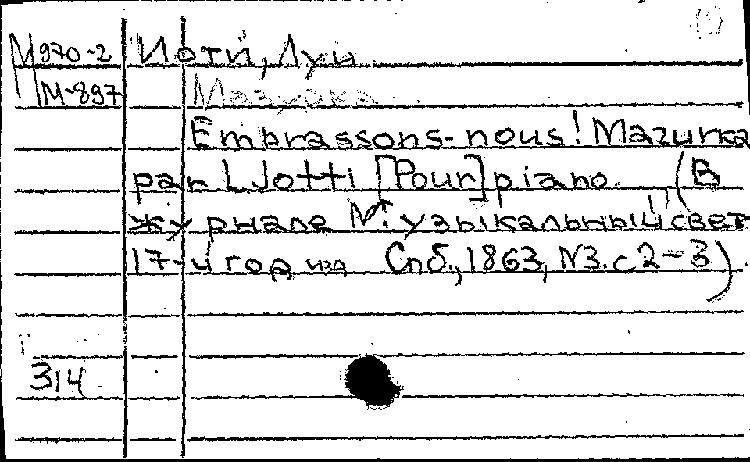 М970-2 Иотти, Луи
М-897 Мазурка
Embrassons-nous! Mazurka
par L. Jotti [Pour] piano. (В
журнале Музыкальный свет"
17-й год изд Спб., 1863, N3. с 2-3).
314